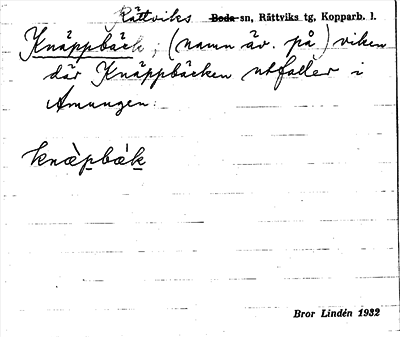 Rättviks Boda-sn, Rättviks tg, Kopparb. l.
Knäppbäck, (namn äv. på) viken
där Knäppbäcken utfaller i
Amungen.
knæ̀p̲bæ̀k̲
Bror Lindén 1932